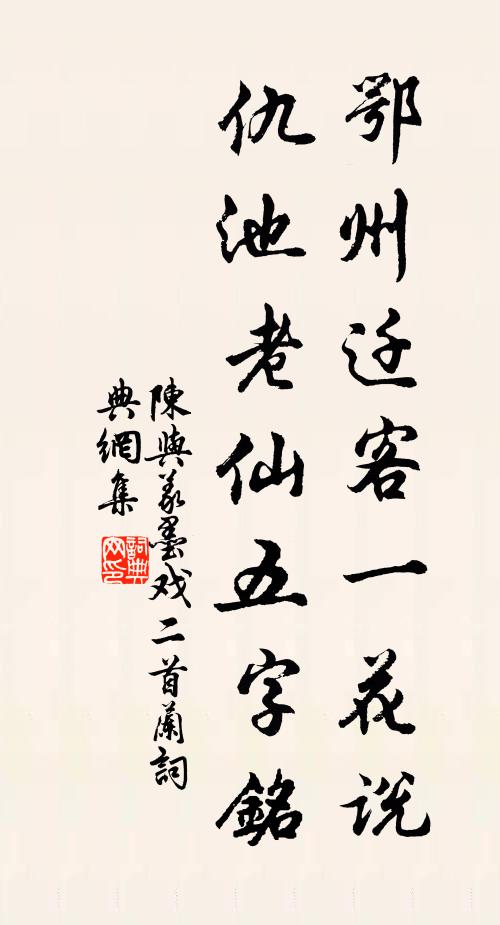 鄂州迁客一花说
仇池老仙五字銘
陳與義墨戏二首蘭詞
典網集
詞典网印